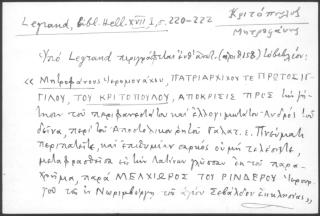 Legrand, Bibl. Hell. XVII, I, σ. 220-222
Κριτόπουλος
Μητροφάνης
Ὑπὸ Legrand περιγράφεται ἐνθ' ἀνωτ. (ἀριθ 158)
« Μητροφάνους Ἱερομονάχου, ΠΑΤΡΙΑΡΧΙΚΟΥ ΤΕ ΠΡΩΤΟΣΥΓ-
ΓΕΛΟΥ, ΤΟΥ ΚΡΙΤΟΠΟΥΛΟΥ, ΑΠΟΚΡΙΣΙΣ ΠΡΟΣ τὴν
τοῦ καὶ ἐλλογιμωτάτου Ἀνδρὸς
δεῖνα, περὶ τοῦ Ἀποστολικοῦ ῥητοῦ Γαλατ. ε. Πνεύματι
περιπατεῖτε, καὶ ἐπιθυμίαν σαρκὸς οὐ μὴ τελέσητε,
εἰς τὴν Λατίνων γλῶσσαν ἐκ τοῦ παρα-
χρῆμα, παρὰ ΜΕΛΧΙΩΡΟΣ ΤΟΥ ΡΙΝΔΕΡΟΥ Ἱερουρ-
γοῦ τῆς ἐν Νωριμβέργῃ τοῦ ἁγίου Σεβάλδου ἐκκλησίας »